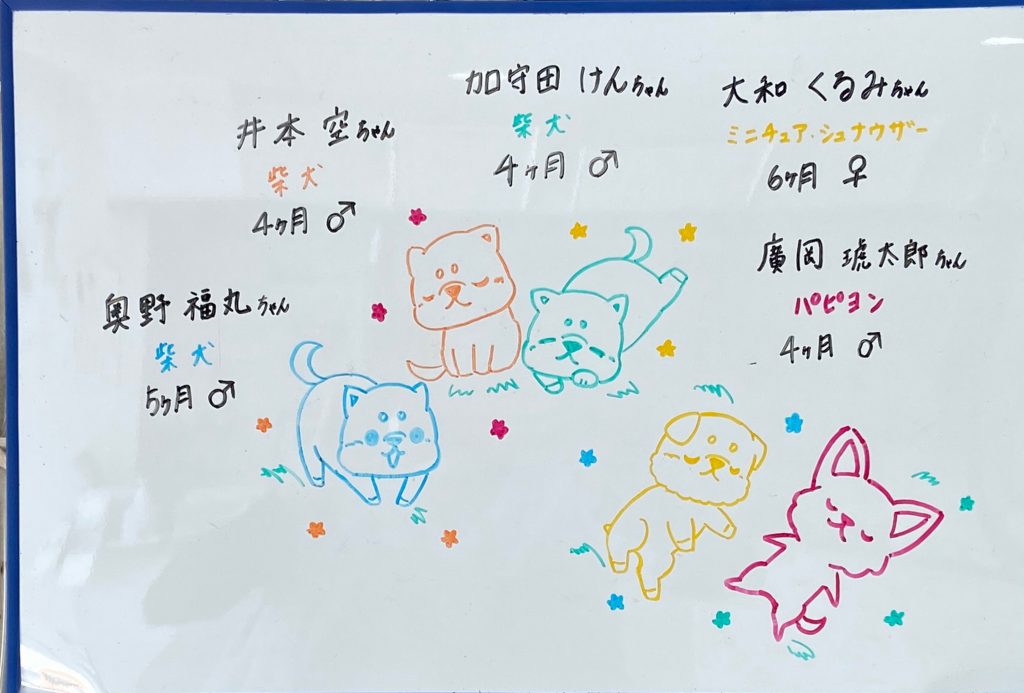 加守田 けんちゃん
柴犬
4ヶ月 ♂
大和 くるみちゃん
ミニチュア・シュナウザー
6ヶ月 ♀
井本 空ちゃん
柴犬
4ヶ月 ♂
廣岡 琥太郎ちゃん
パピヨン
4ヶ月 ♂
奥野 福丸ちゃん
柴犬
5ヶ月 ♂